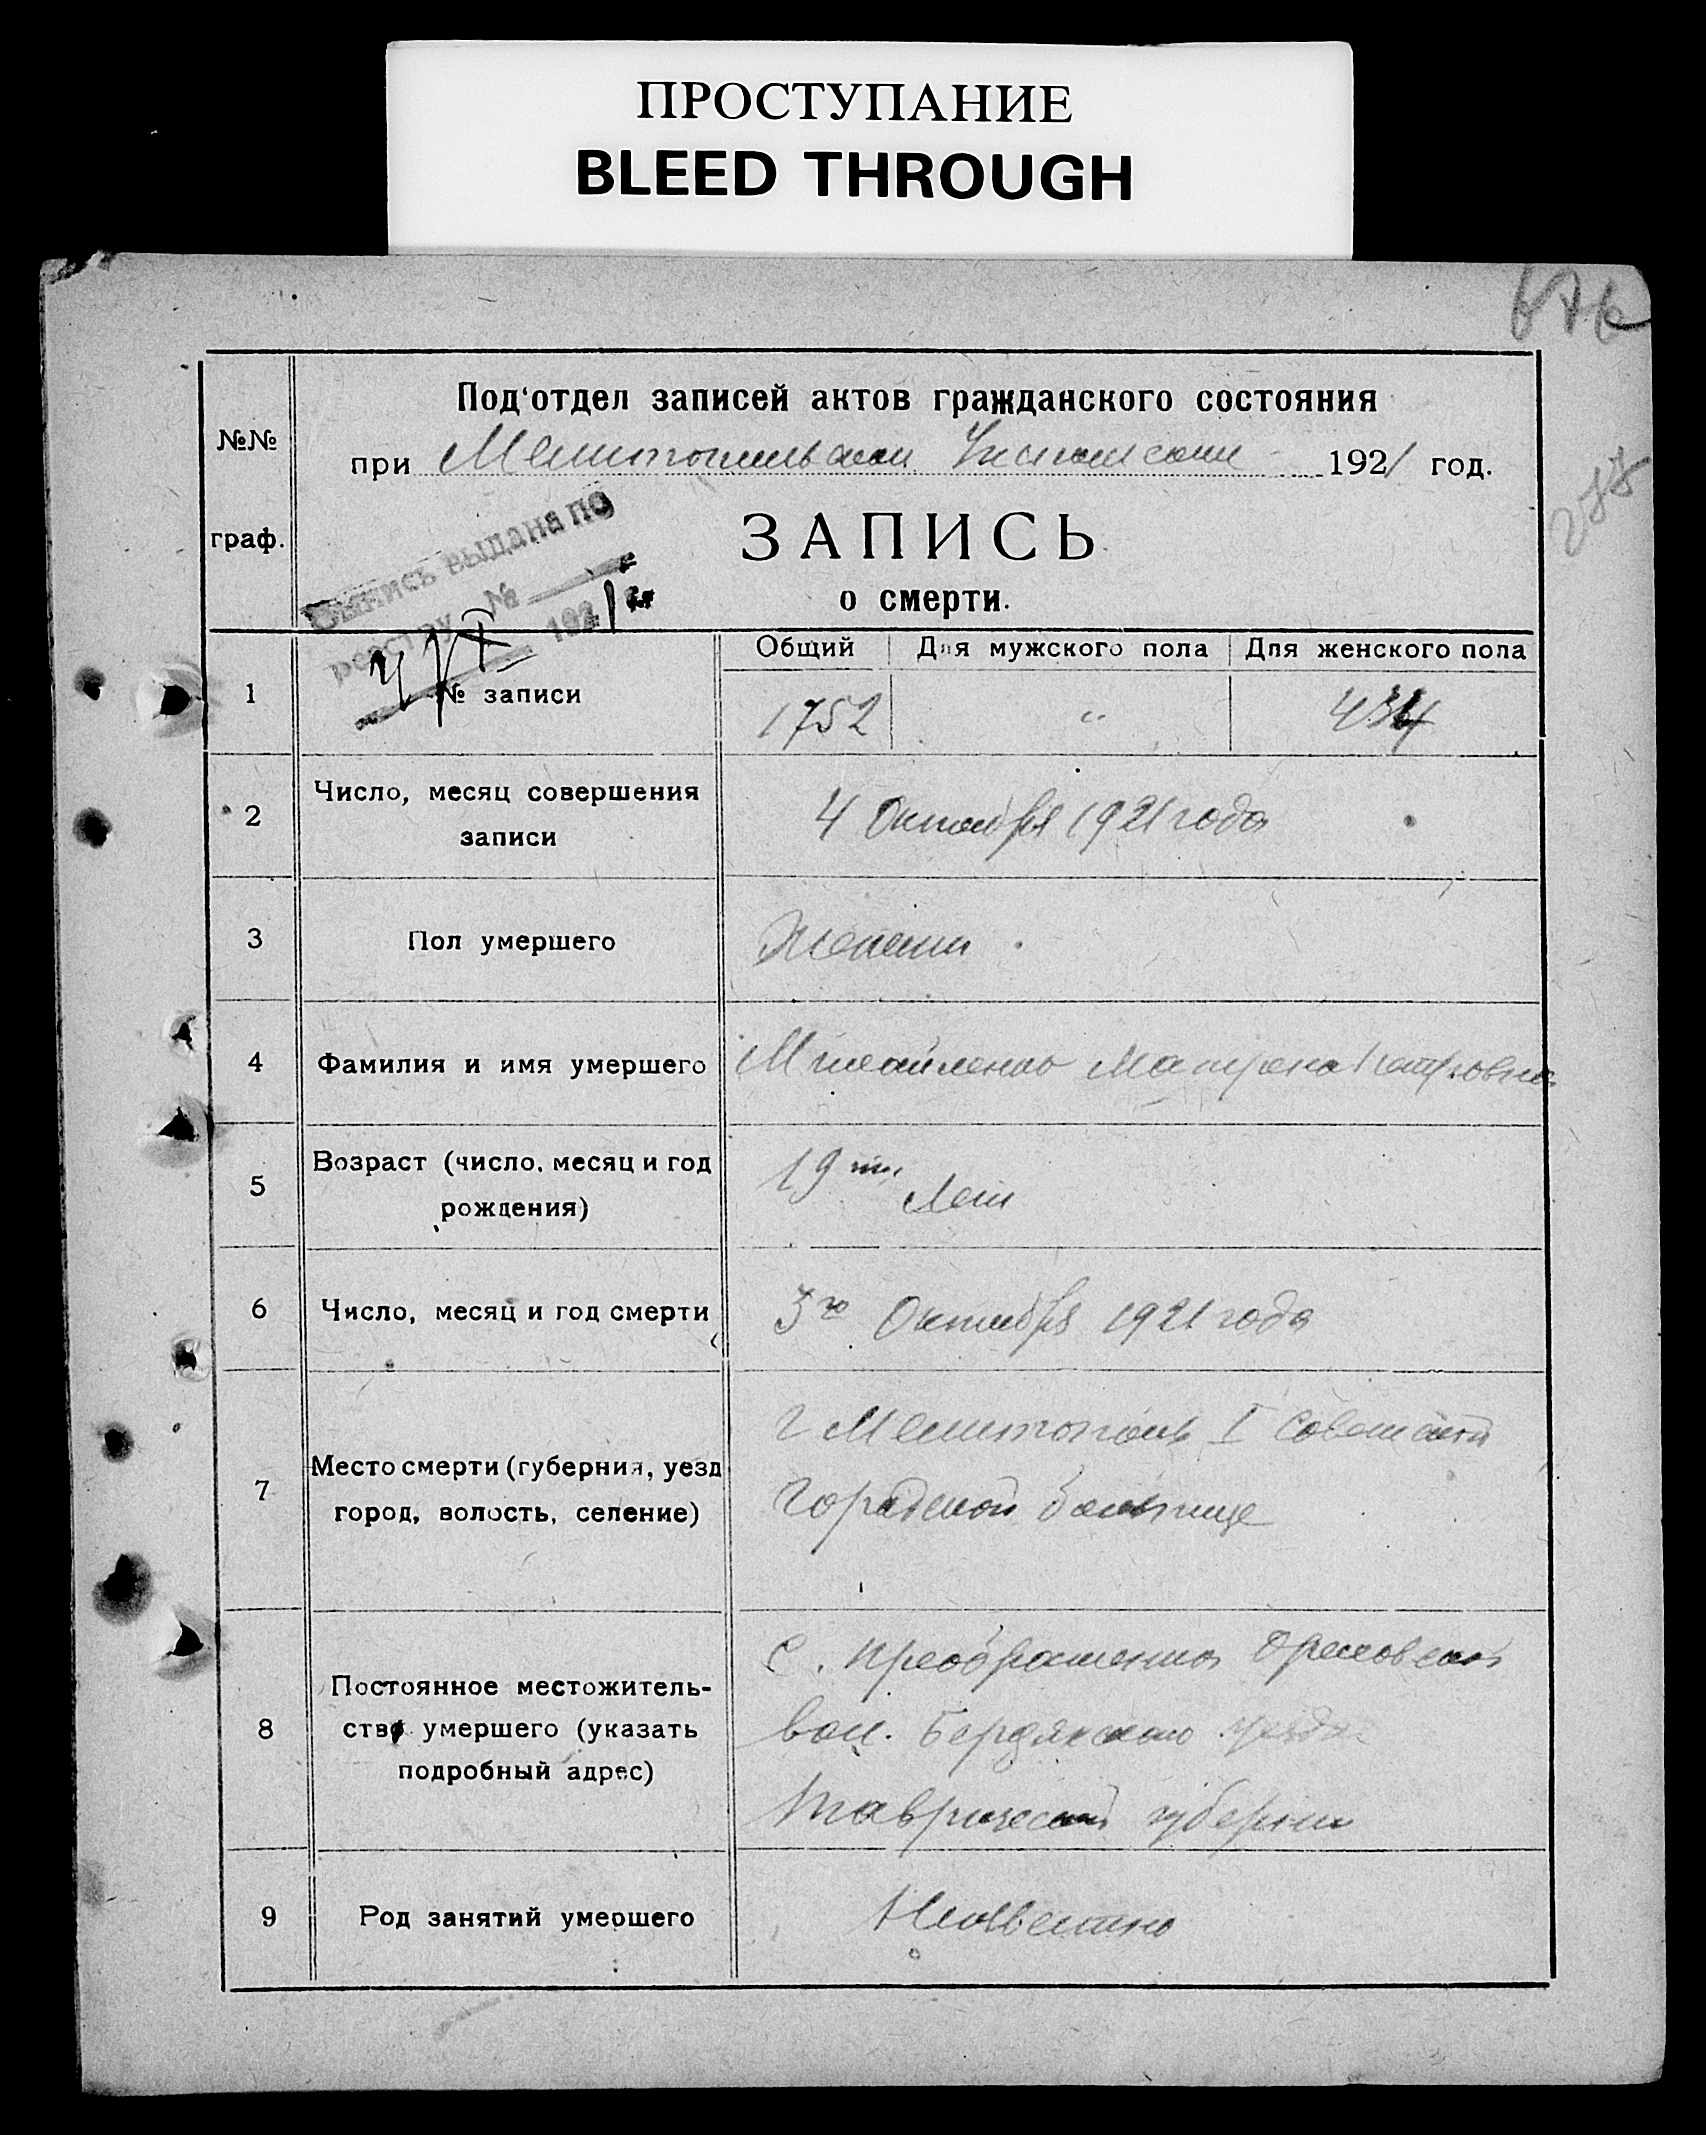 ПРОСТУПАНИЕ
BLEED THROUGH
№№
граф.
Под'отдел записей актов гражданского состояния
при Мелитопольском 1921 год.
ЗАПИСЬ
о смерти.
Выпись выдана по
реестру №
192
Общий Для мужского пола Для женского пола
1 № записи 1752 " 434
2 Число, месяц совершения
записи
4 Октября 1921 года
3 Пол умершего
4 Фамилия и имя умершего Михайленко Матрена Петровна
5 Возраст (число, месяц и год
рождения)
19ти Лет
6 Число, месяц и год смерти 3го Октября 1921 года
7 Место смерти (губерния, уезд
город, волость, селение)
г Мелитополь I Советской
Городской больнице
8 Постоянное местожитель-
ство умершего (указать
подробный адрес)
С. Преображенка Ореховской
вол. Бердянского уезда
Таврической губернии
9 Род занятий умершего Неизвестно